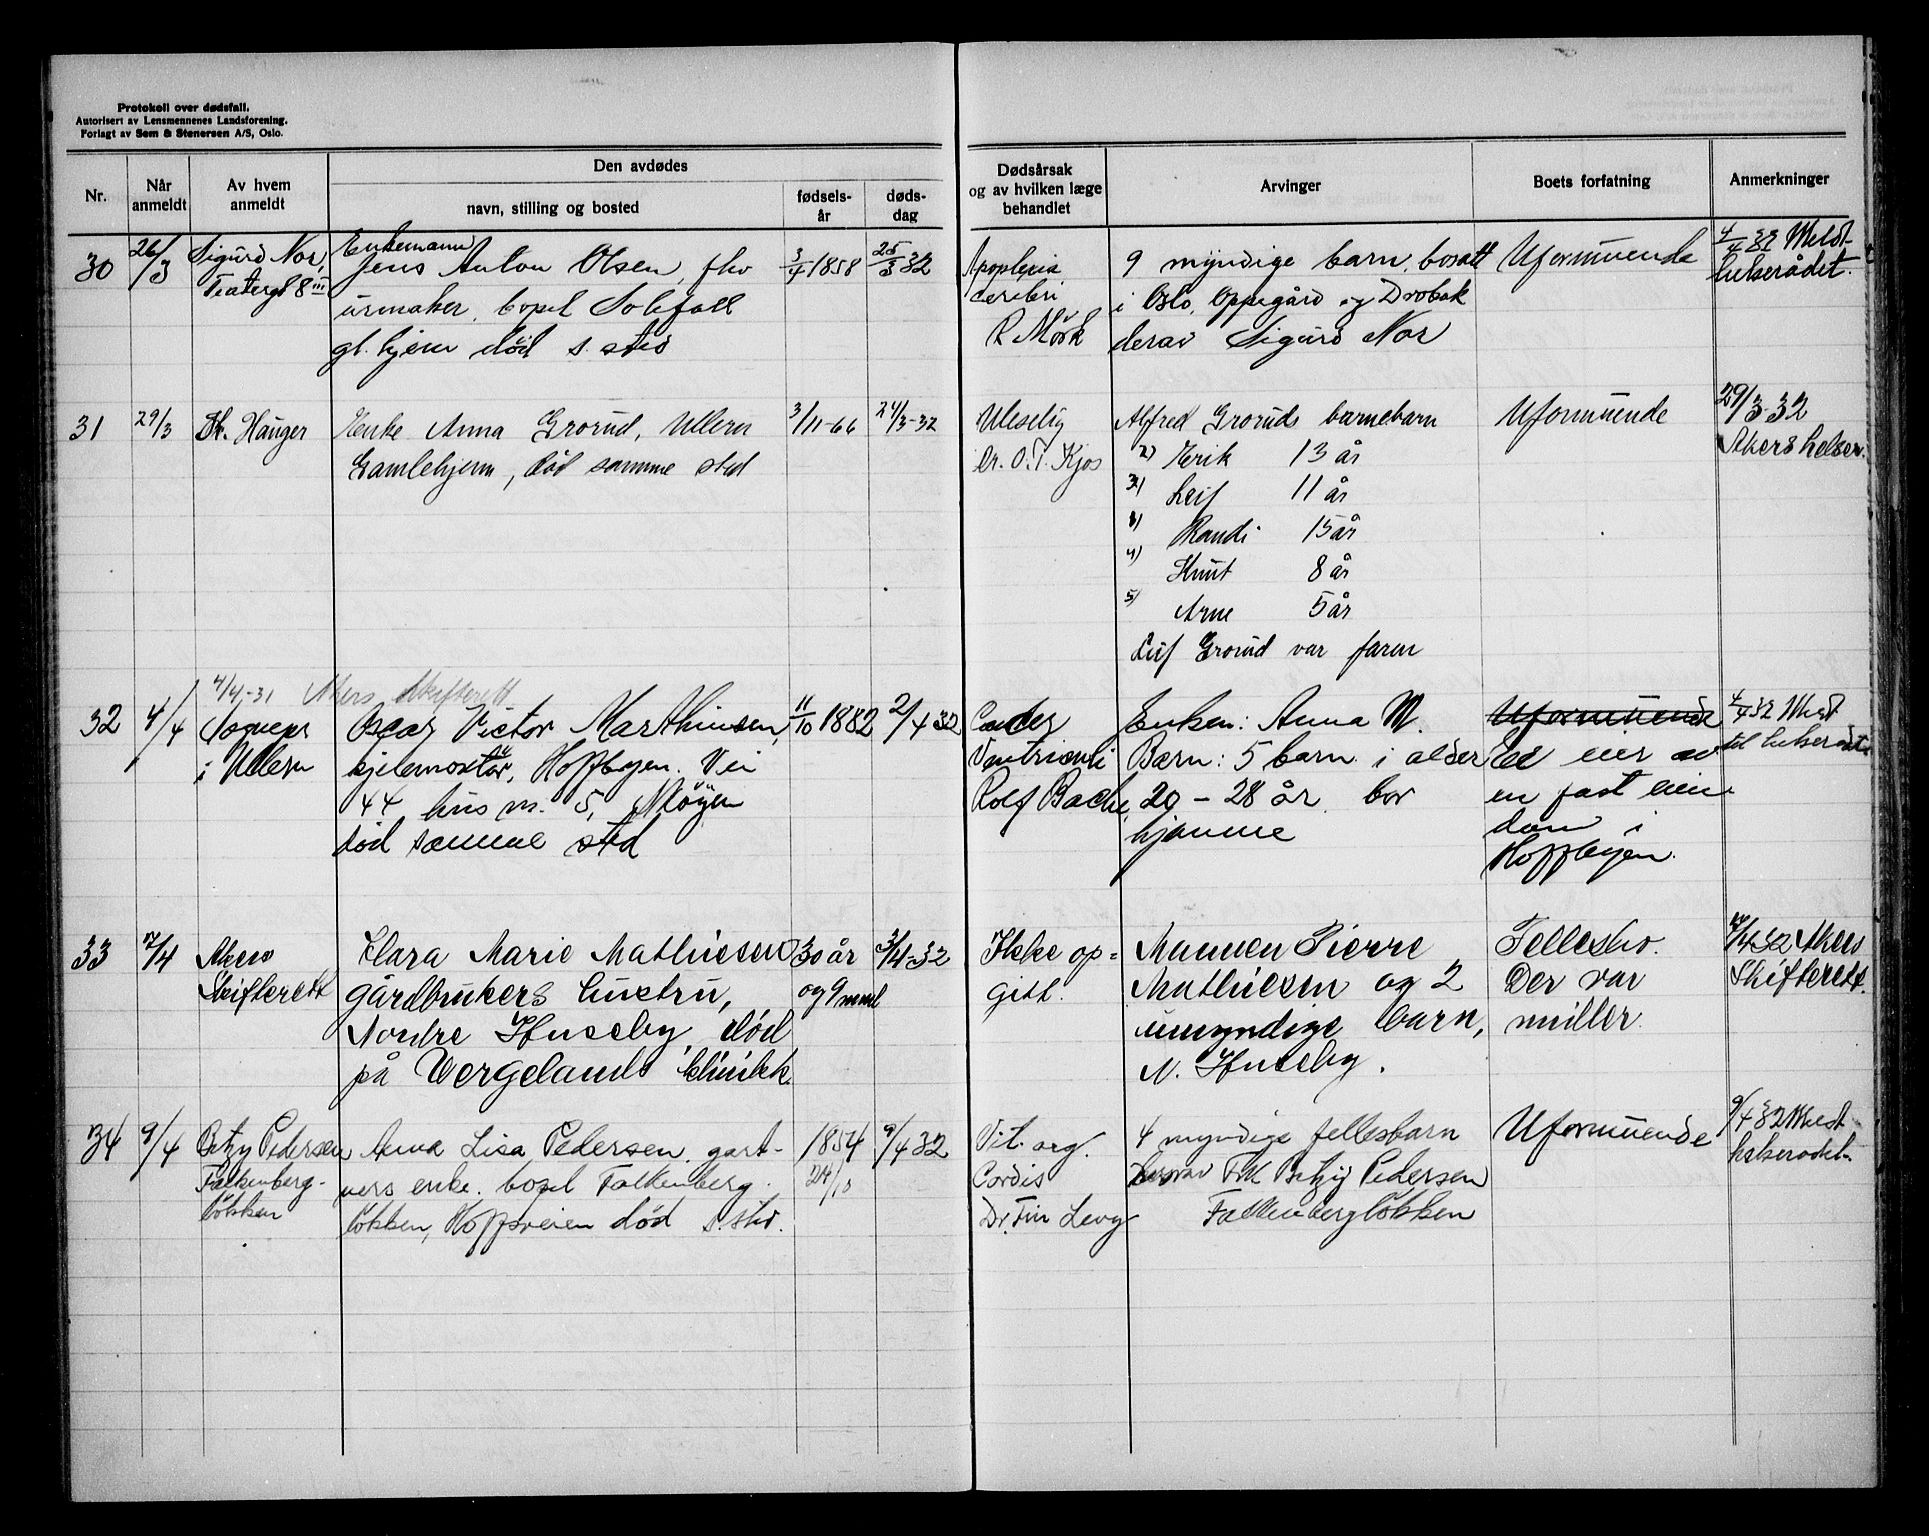 Protokoll over dødsfall.
Autorisert av Lensmennenes Landsforening.
Forlagt av Sem & Stenersen A/S, Oslo.
Nr.
Når
anmeldt
Av hvem
anmeldt
Den avdødes
navn, stilling og bosted
fødsels-
år
døds-
dag
Dødsårsak
og av hvilken læge
behandlet
Arvinger
Boets forfatning
Anmerkninger
30
26/3
Sigurd Nor,
Teatergt 8 III
Enkemann
Jens Anton Olsen, fhv
urmaker, bopel Solfall
gl. hjem død s. sted
3/4 1858
25/3 32
Apoplexia
cerebri
R Mörk
9 myndige barn, bosatt
i Oslo, Oppegård og Drøbak
derav Sigurd Nor
Uformuende
4/4 32 Meldt
helserådet.
31
29/3
Th. Hauger
Enke Anna Grorud, Ullern
Gamlehjem, død samme sted
3/11-66
24/3-32
Dr. O. T. Kjos
Alfred Groruds barnebarn
2) Erik 13 år
3) Leif 11 år
Randi 15 år
4) Knut 8 år
5) Arne 5 år
Leif Grorud var faren
Uformuende
29/3 32
Akers helser.
32
4/4
4/4-31 Akers Skifterett
Sognepr
i Ullern
Oscar Victor Marthinsen,
Hoffbyen. Vei
44 hus nr. 5,
død samme sted
11/10 1882
2/4 32
Cancer
Ventriculi
Rolf Bache
Enken: Anna M.
Barn: 5 barn i alder
20 - 28 år bor
hjemme
Uformuende
eier av
en fast eien
dom i
Hoffbyen.
4/4 32 Meldt
til helserådet
33
7/4
Akers
Skifterett
Klara Marie Mathiesen
gårdbrukers hustru,
Nordre Huseby, død
på Vergelands klinikk.
30 år
og 9 mnd
3/4-32
Ikke op=
gitt.
Mannen Pierre
Mathiesen og 2
umyndige barn,
N. Huseby.
Fellesbo.
Der var
midler.
7/4 32 Akers
Skifterett.
34
9/4
Betzy Pedersen
Falkenberg-
løkken
Anna Lisa Pedersen, gart-
ners enke. bopel Falkenberg-
løkken, Hoffsveien død s. sted.
1854
24/10
9/4 32
Vit. org.
Cordis
Dr. Finn Levy
4 myndige fellesbarn
derav Frk Betzy Pedersen
Falkenbergløkken
Uformuende
9/4 32 Meldt
helserådet.